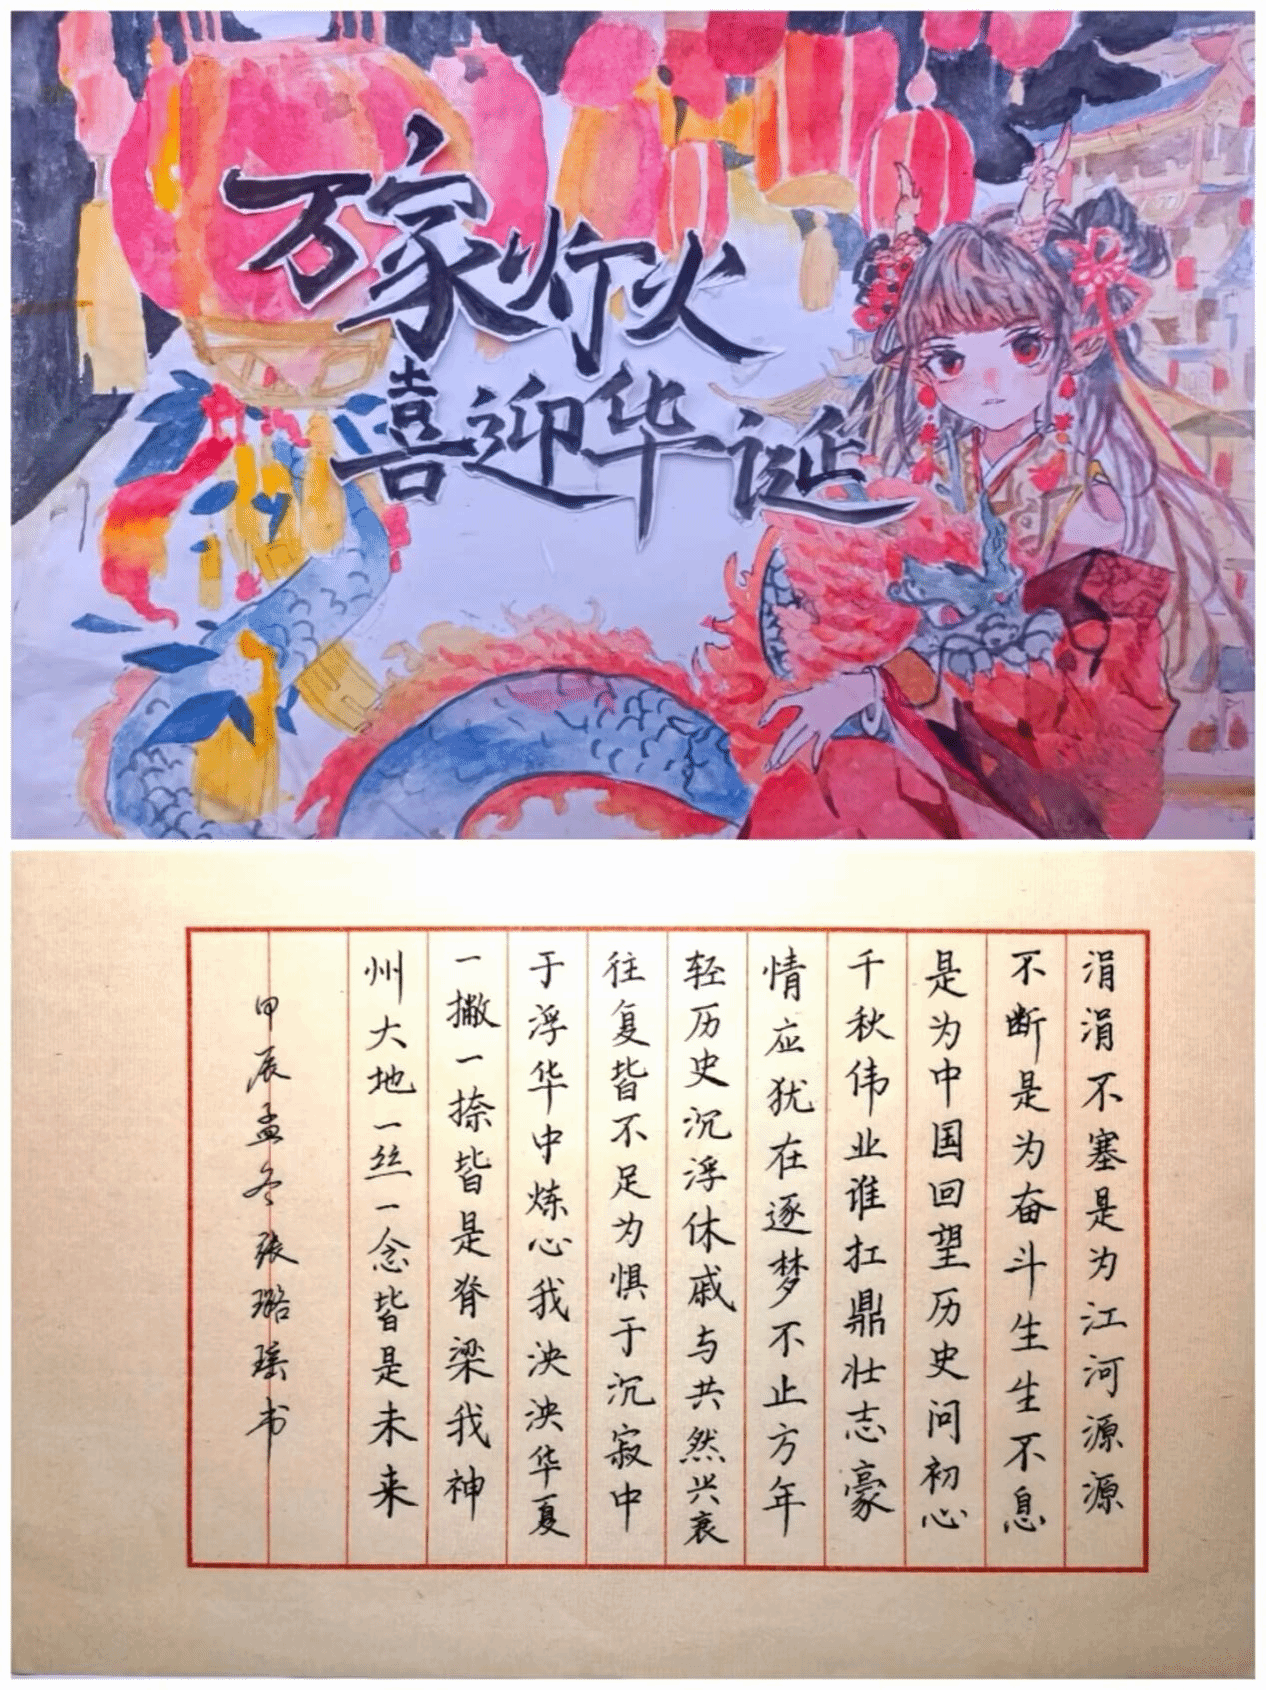 万家灯火
喜迎华诞
涓涓不塞是为江河源源
不断是为奋斗生生不息
是为中国回望历史问初心
千秋伟业谁扛鼎壮志豪
情应犹在逐梦不止方年
轻历史沉浮休戚与共然兴衰
往复皆不足为惧于沉寂中
于浮华中炼心我泱泱华夏
一撇一捺皆是脊梁我神
州大地一丝一念皆是未来
甲辰孟冬张璐瑶书